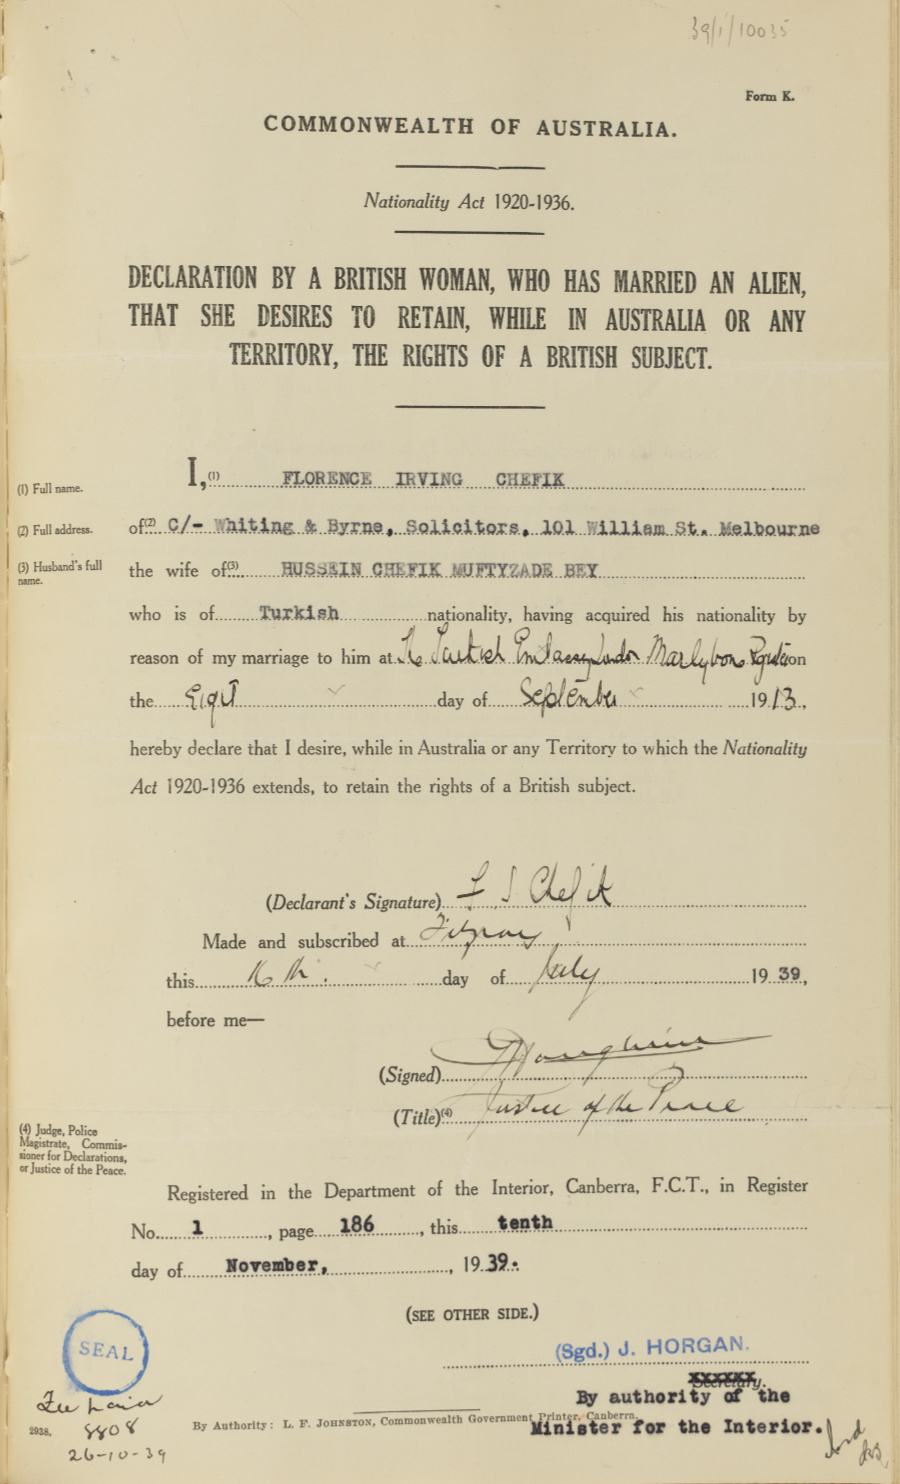 39/1/10035
Form K.
COMMONWEALTH OF AUSTRALIA.
Nationality Act 1920-1936.
DECLARATION BY A BRITISH WOMAN, WHO HAS MARRIED AN ALIEN,
THAT SHE DESIRES TO RETAIN, WHILE IN AUSTRALIA OR ANY
TERRITORY, THE RIGHTS OF A BRITISH SUBJECT.
(1) Full name.
I,(1) FLORENCE IRVING CHEFIK
(2) Full address.
of(2) C/- Whiting & Byrne, Solicitors, 101 William St. Melbourne
(3) Husband's full
name.
the wife of(3) HUSSEIN CHEFIK MUFTYZADE BEY
who is of Turkish nationality, having acquired his nationality by
reason of my marriage to him at The Turkish Embassy London on
the day of September 1913,
hereby declare that I desire, while in Australia or any Territory to which the Nationality
Act 1920-1936 extends, to retain the rights of a British subject.
(Declarant's Signature) F I Chefik
Made and subscribed at Fitzroy
this 16th. day of July 1939,
before me—
(Signed)
(Title)(4) Justice of the Peace
(4) Judge, Police
Magistrate, Commis-
sioner for Declarations,
or Justice of the Peace.
Registered in the Department of the Interior, Canberra, F.C.T., in Register
No. 1, page 186, this tenth
day of November, 1939.
(SEE OTHER SIDE.)
SEAL
(Sgd.) J. HORGAN.
Secretary.
By authority of the
Minister for the Interior.
By Authority: L. F. JOHNSTON, Commonwealth Government Printer, Canberra.
2938.
8808
26-10-39